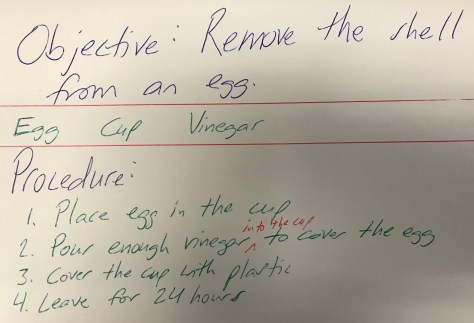 Objective: Remove the shell
from an egg.
Egg Cup Vinegar
Procedure:
1. Place egg in the cup
2. Pour enough vinegar into the cup to cover the egg
3. Cover the cup with plastic
4. Leave for 24 hours